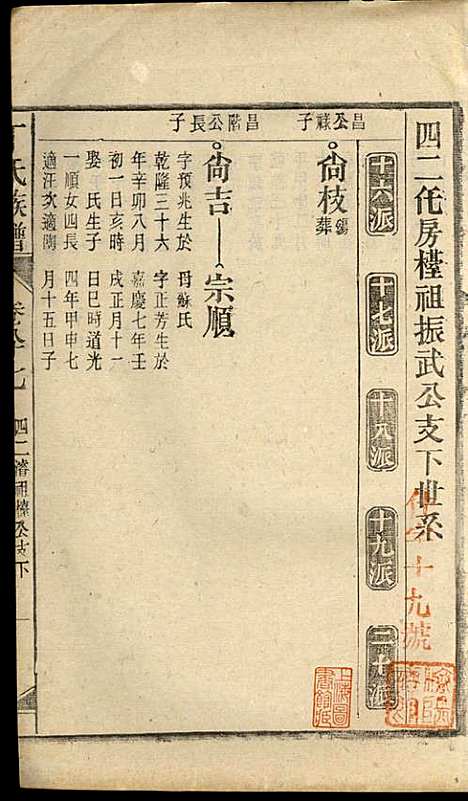 四二仛房檯祖振武公支下世系
十九號
十六派
十七派
十八派
十九派
二十派
昌公祿子
尙枝
葬
昌階公長子
尙吉
字預兆生於
乾隆三十六
年辛卯八月
初一日亥時
娶丁氏生子
一順女四長
適汪次適陶
宗順
母蘇氏
字正芳生於
嘉慶七年壬
戌正月十一
日巳時道光
四年甲申七
月十五日子
氏族譜
四二
祖檯公支下
上海圖書館藏